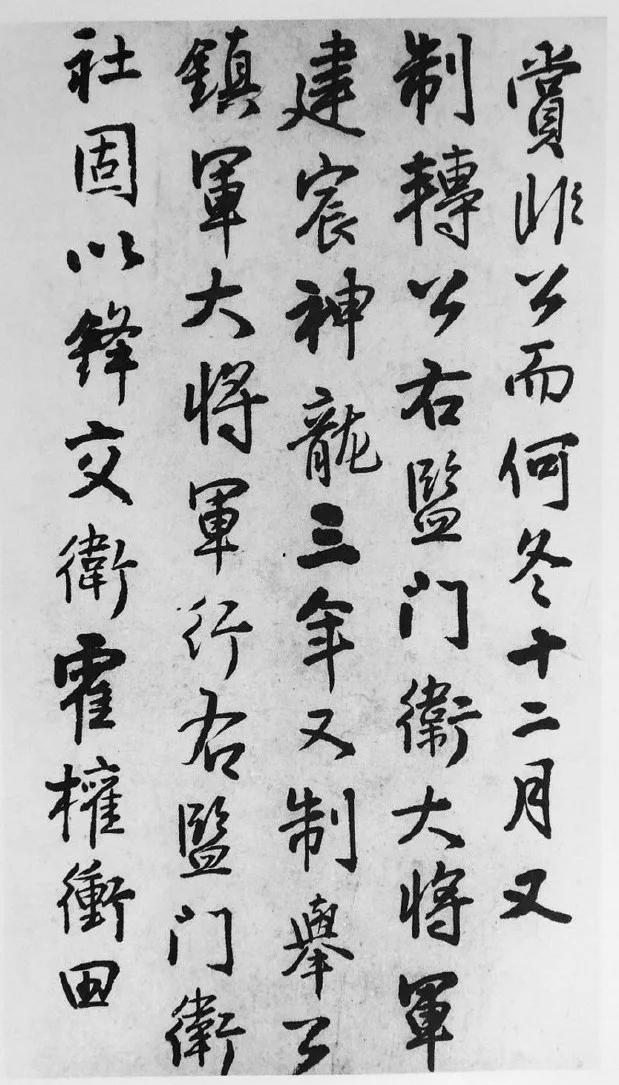 賞非公而何冬十二月又
制轉公右監門衛大將軍
建宸神龍三年又制舉公
鎮軍大將軍行右監門衛
社固以鋒交衛霍權衝田